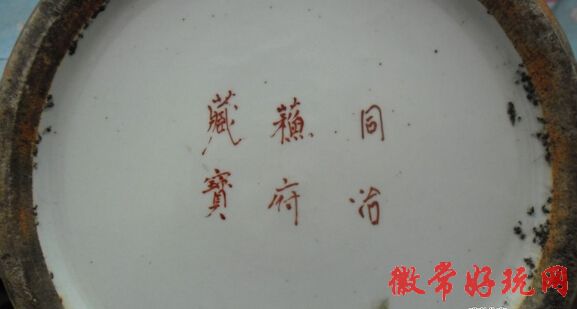 同治
蘓府
藏寶
徽常好玩网